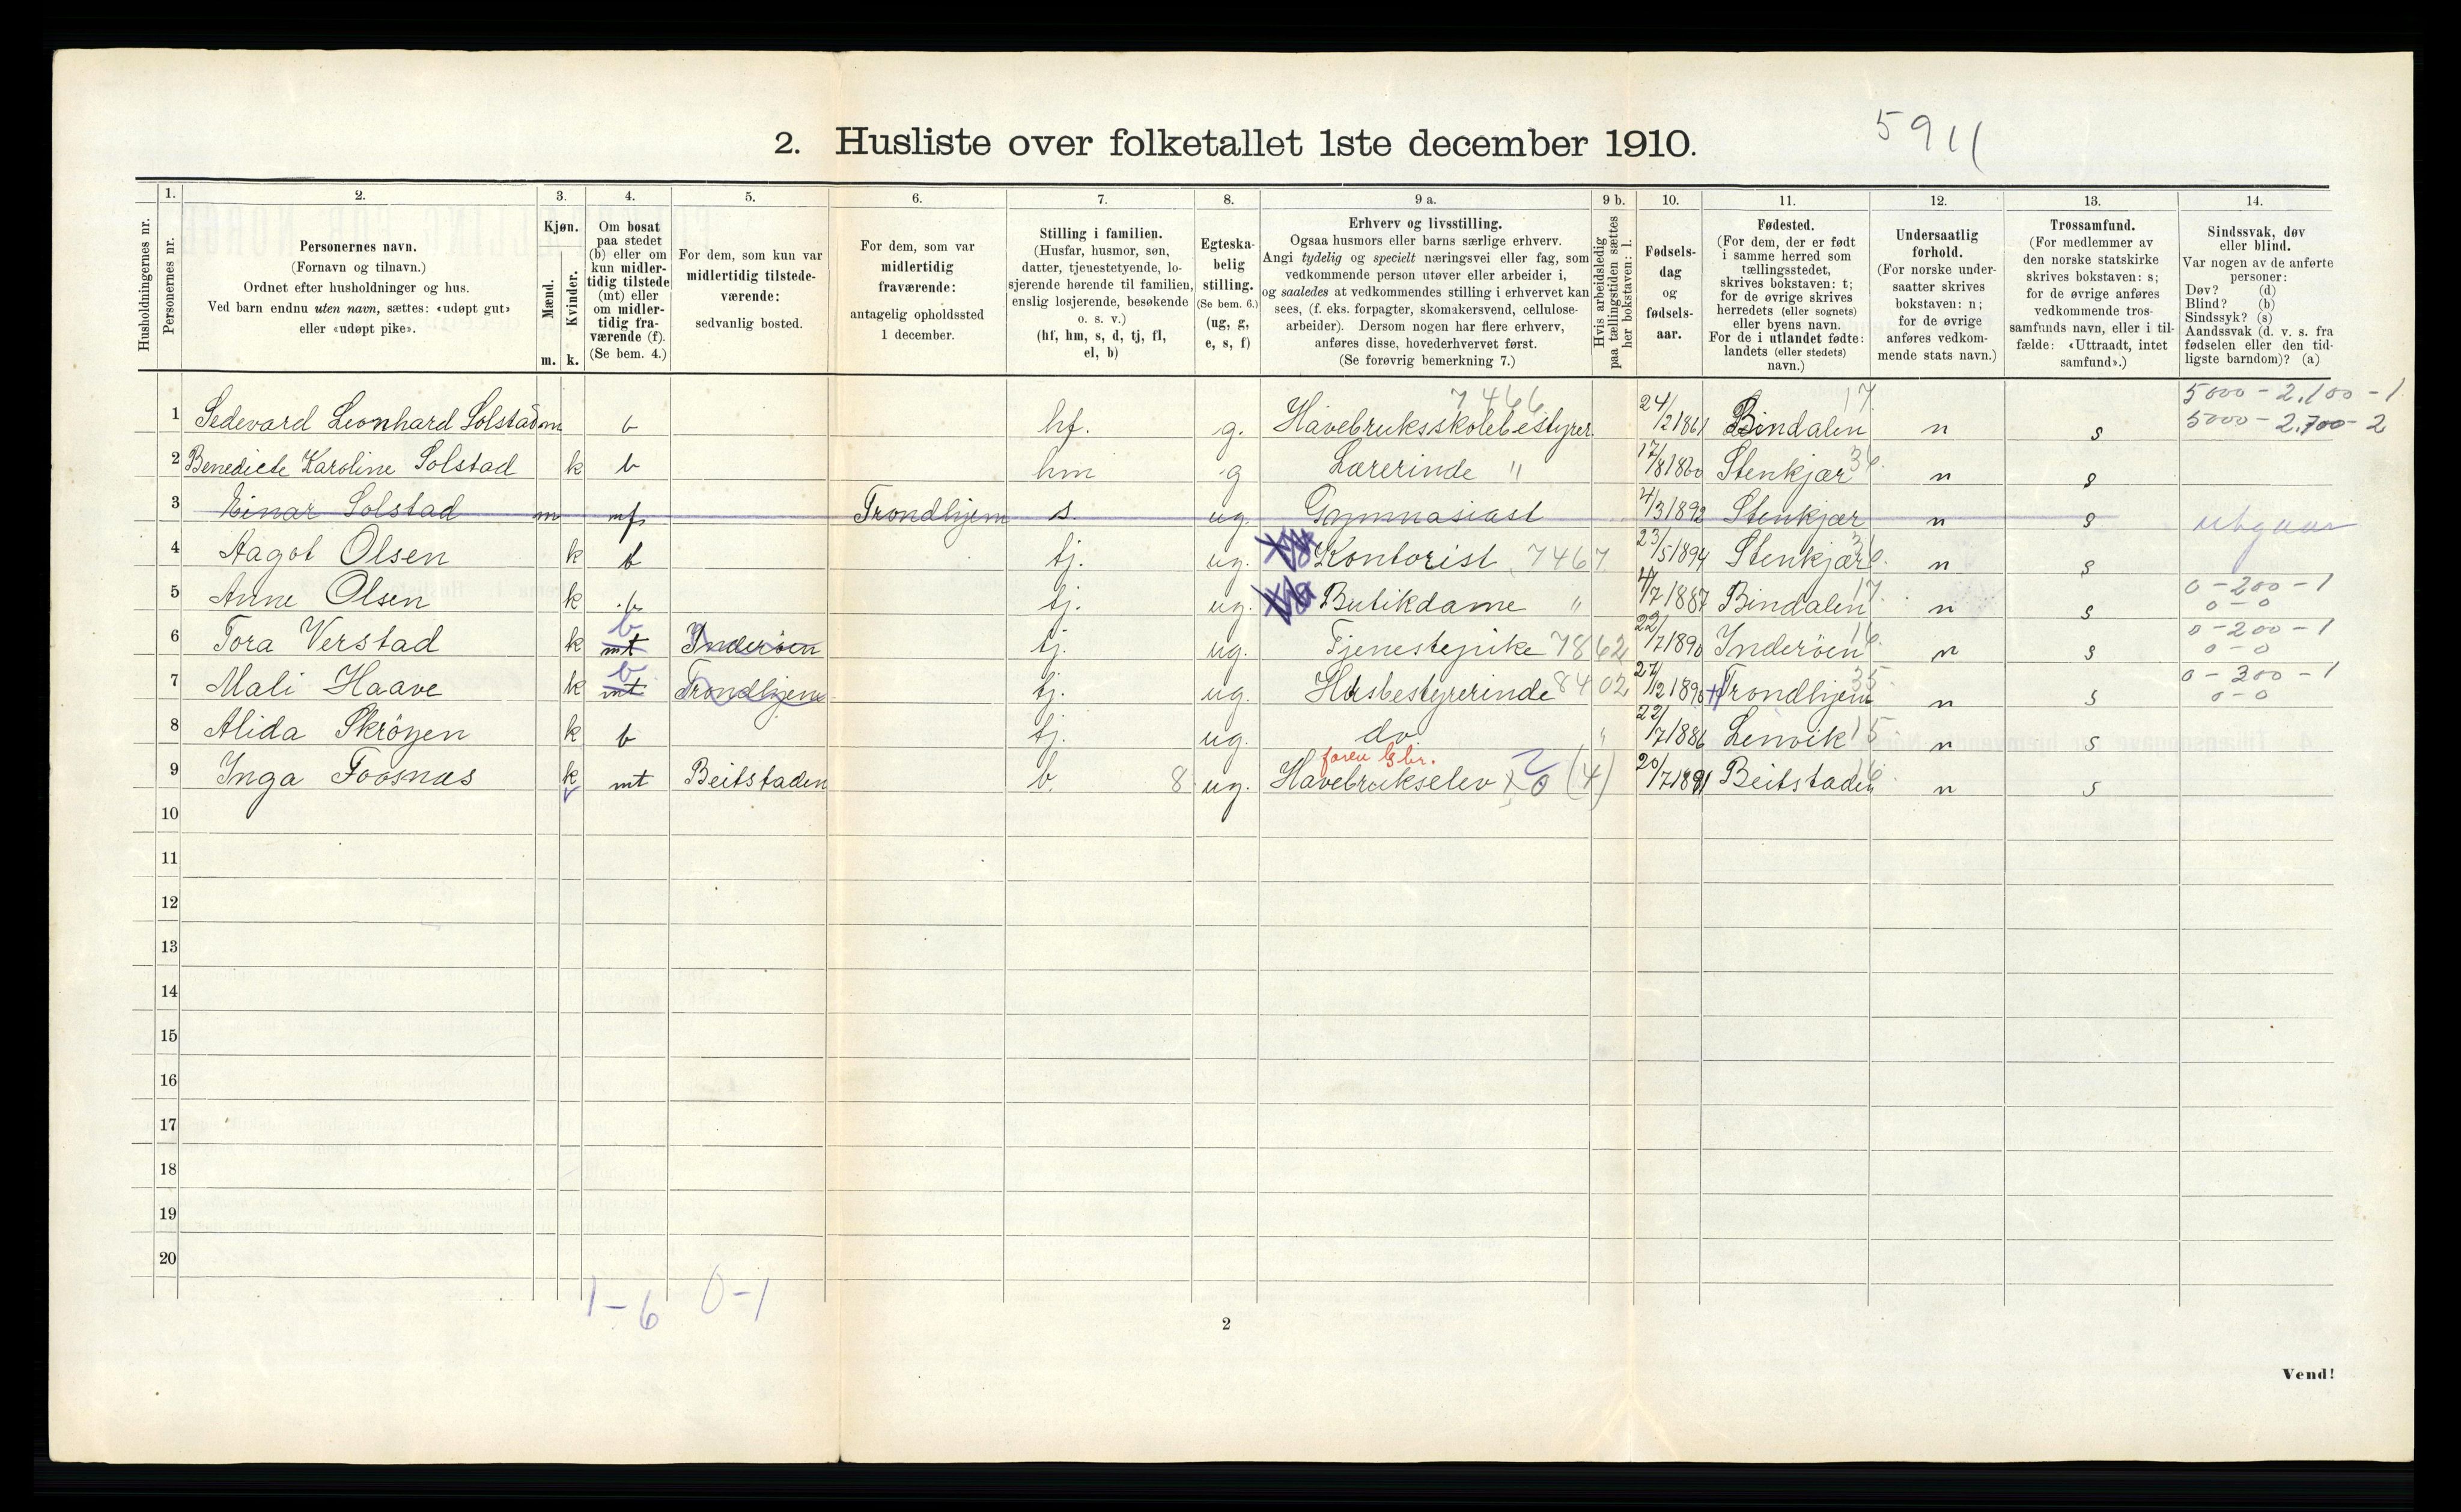 2. Husliste over folketallet 1ste december 1910.
5911
Husholdningernes nr.
1. Personernes nr.
2. Personernes navn.
(Fornavn og tilnavn.)
Ordnet efter husholdninger og hus.
Ved barn endnu uten navn, sættes: «udøpt gut»
eller «udøpt pike».
3. Kjøn.
Mænd. m.
Kvinder. k.
4. Om bosat
paa stedet
(b) eller om
kun midler-
tidig tilstede
(mt) eller
om midler-
tidig fra-
værende (f).
(Se bem. 4.)
5. For dem, som kun var
midlertidig tilstede-
værende:
sedvanlig bosted.
6. For dem, som var
midlertidig
fraværende:
antagelig opholdssted
1 december.
7. Stilling i familien.
(Husfar, husmor, søn,
datter, tjenestetyende, lo-
sjerende hørende til familien,
enslig losjerende, besøkende
o. s. v.)
(hf, hm, s, d, tj, fl,
el, b)
8. Egteska-
belig
stilling.
(Se bem. 6.)
(ug, g,
e, s, f)
9 a. Erhverv og livsstilling.
Ogsaa husmors eller barns særlige erhverv.
Angi tydelig og specielt næringsvei eller fag, som
vedkommende person utøver eller arbeider i,
og saaledes at vedkommendes stilling i erhvervet kan
sees, (f. eks. forpagter, skomakersvend, cellulose-
arbeider). Dersom nogen har flere erhverv,
anføres disse, hovederhvervet først.
(Se forøvrig bemerkning 7.)
9 b. Hvis arbeidsledig
paa tællingstiden sættes
her bokstaven: l.
10. Fødsels-
dag
og
fødsels-
aar.
11. Fødested.
(For dem, der er født
i samme herred som
tællingsstedet,
skrives bokstaven: t;
for de øvrige skrives
herredets (eller sognets)
eller byens navn.
For de i utlandet fødte:
landets (eller stedets)
navn.)
12. Undersaatlig
forhold.
(For norske under-
saatter skrives
bokstaven: n;
for de øvrige
anføres vedkom-
mende stats navn.)
13. Trossamfund.
(For medlemmer av
den norske statskirke
skrives bokstaven: s;
for de øvrige anføres
vedkommende tros-
samfunds navn, eller i til-
fælde: «Uttraadt, intet
samfund».)
14. Sindssvak, døv
eller blind.
Var nogen av de anførte
personer:
Døv? (d)
Blind? (b)
Sindssyk? (s)
Aandssvak (d. v. s. fra
fødselen eller den tid-
ligste barndom)? (a)
7466 17 5000 - 2.100 - 1
1 Sedevard Leonhard Solstad m b hf. g. Havebruksskolebestyrer 24/12 1861 Bindalen n s 5000 - 2.700 - 2
2 Benedicte Karoline Solstad k b hm g Lærerinde " 17/8 1860 Stenkjær 36. n s
3 Einar Solstad m mf Trondhjem s. ug. Gymnasiast 4/3 1892 Stenkjær n s utgaar
4 Aagot Olsen k b tj. ug. Kontorist 7467 23/5 1894 Stenkjær 36. n s
5 Anne Olsen k b tj. ug. Butikdame " 4/7 1887 Bindalen 17. n s 0 - 200 - 1
0 - 0
6 Tora Verstad k mt b Inderöen tj. ug. Tjenestepike 7862 22/7 1890 Inderöen 16 n s 0 - 200 - 1
0 - 0
7 Mali Haave k mt b Trondhjem tj. ug. Husbestyrerinde 8402 24/12 1890 Trondhjem 35. n s 0 - 300 - 1
0 - 0
8 Alida Skröyen k b tj. ug. do " 22/7 1886 Lenvik 15 n s
9 Inga Foosnæs k mt Beitstaden b. 8 ug. Havebrukselev x 0 (4) 20/7 1891 Beitstaden 16. n s
10
11
12
13
14
15
16
17
18
19
20
1 - 6 0 - 1
2
Vend!